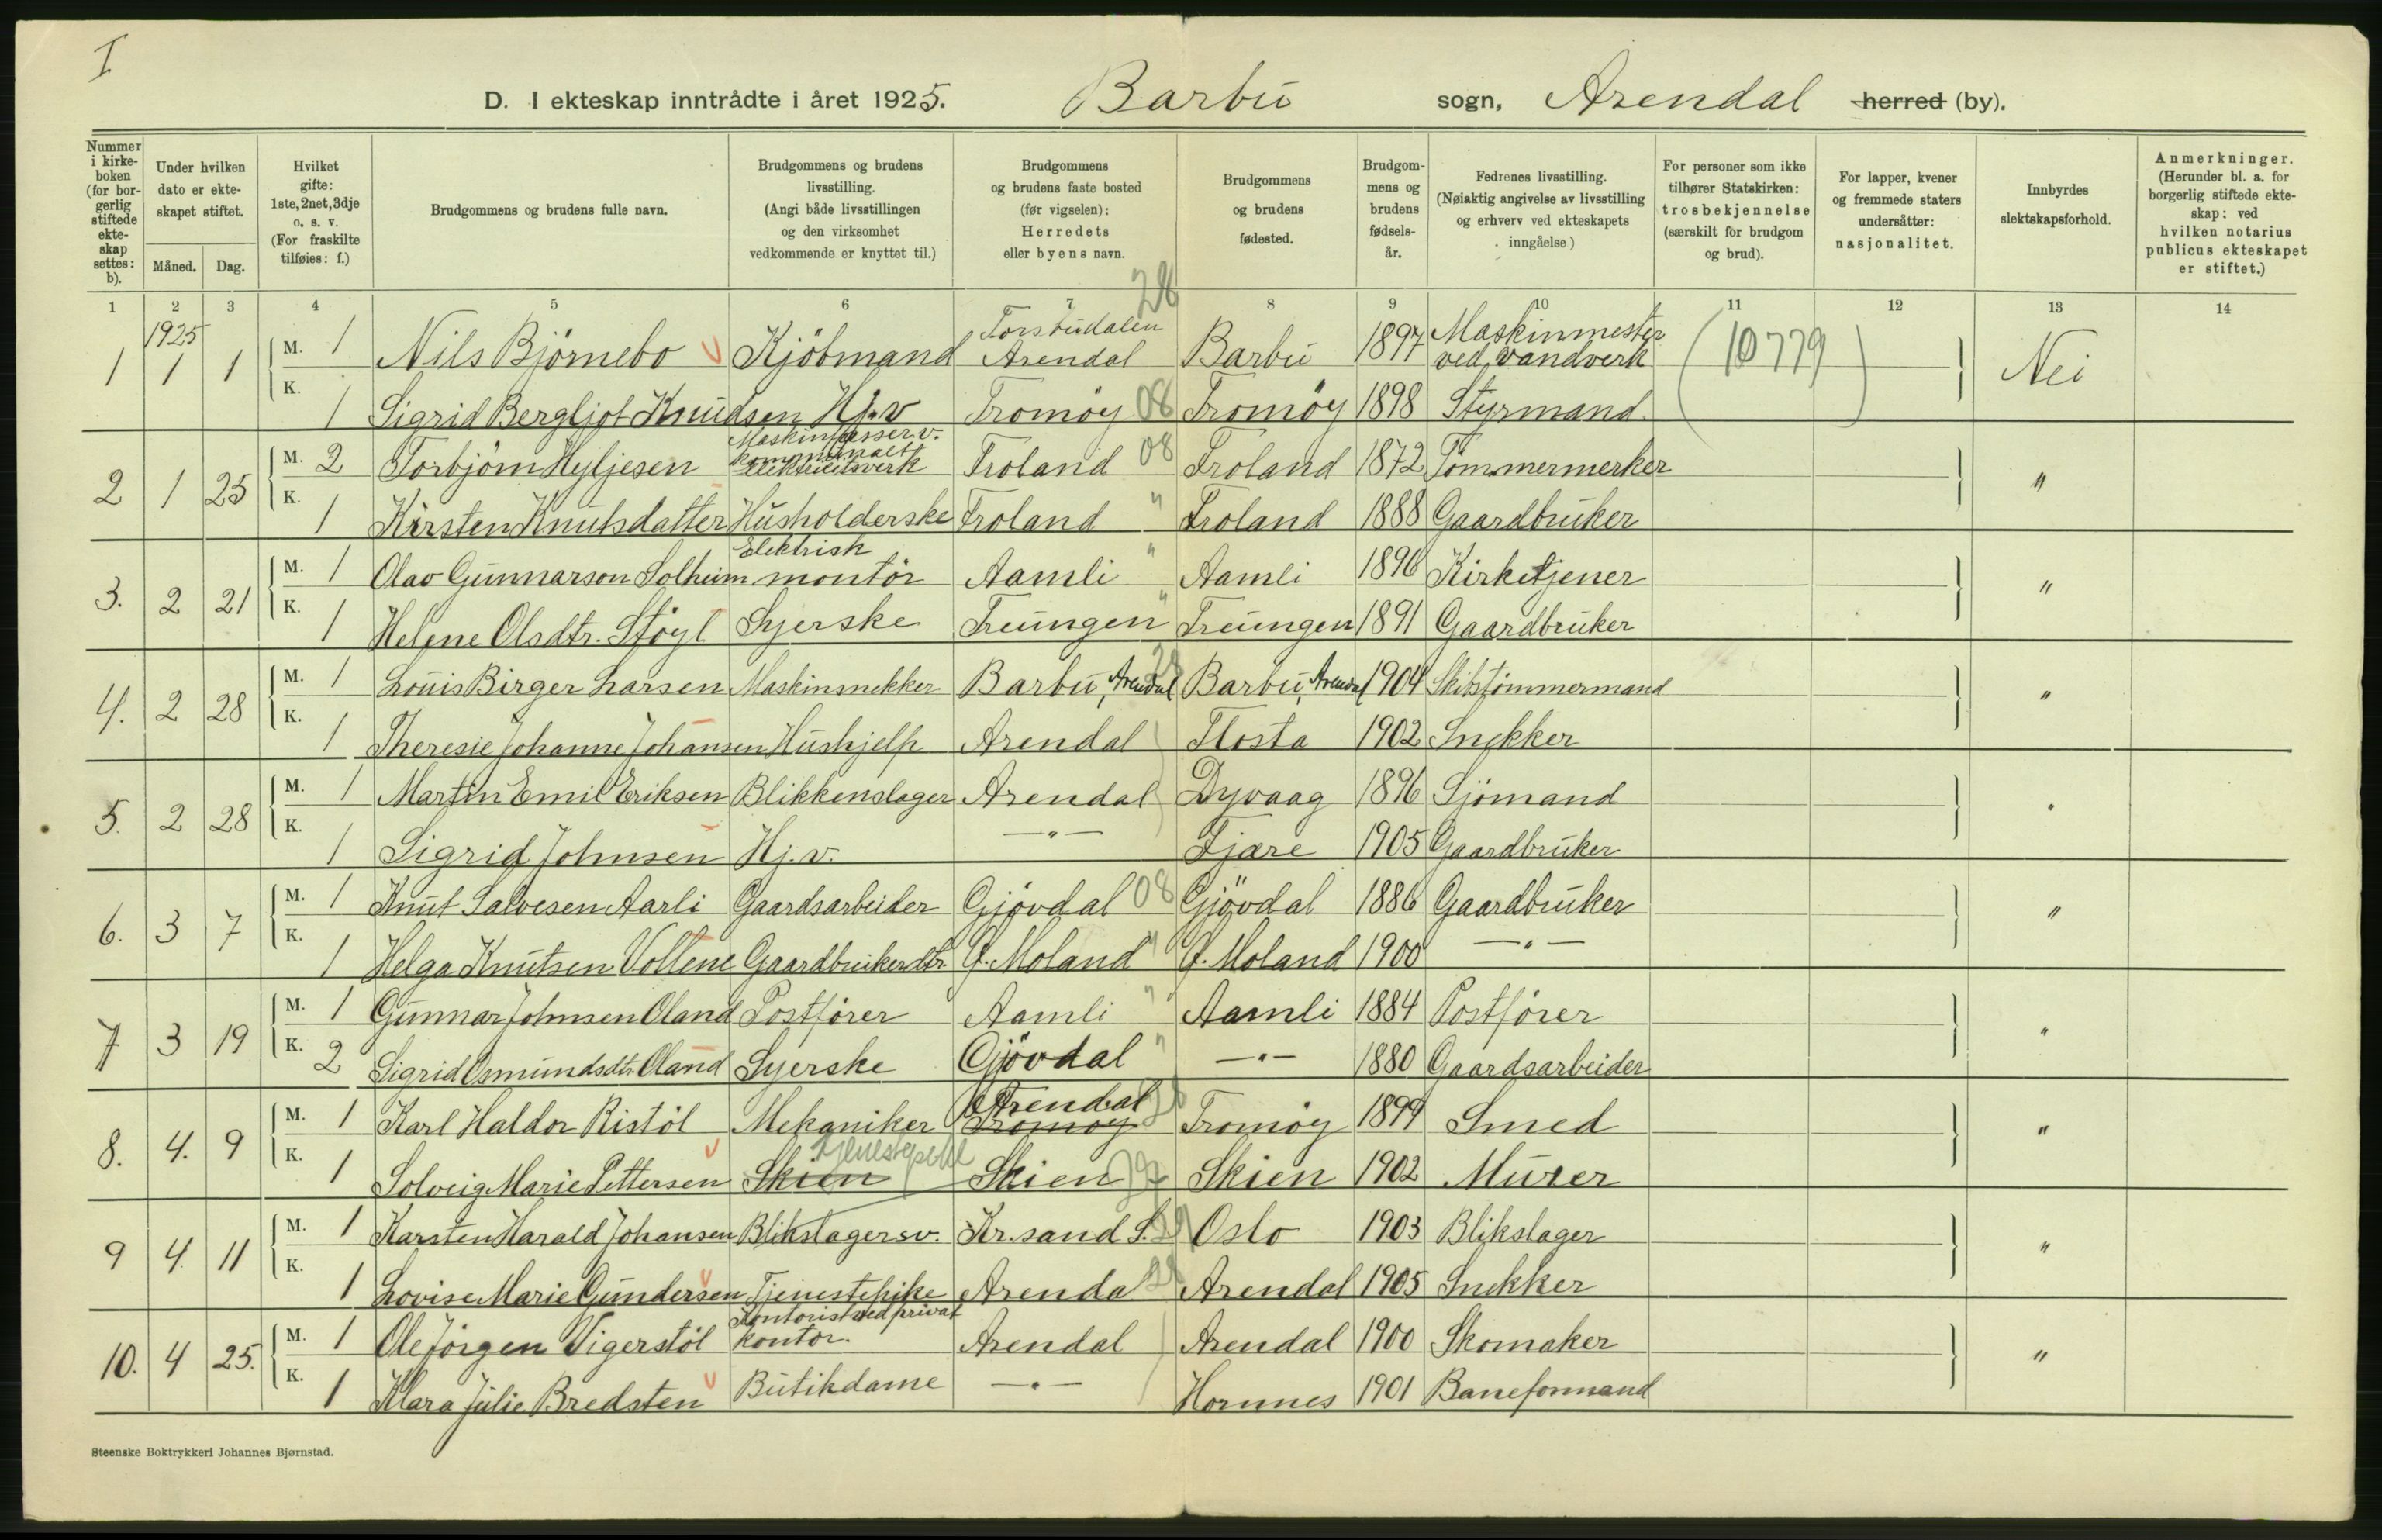 I
D. I ekteskap inntrådte i året 1925. Barbu sogn, Arendal herred (by).
Nummer i kirkeboken (for borgerlig stiftede ekteskap settes: b).
Under hvilken dato er ekteskapet stiftet.
Måned. Dag.
Hvilket gifte: 1ste, 2net, 3dje o. s. v. (For fraskilte tilføies: f.)
Brudgommens og brudens fulle navn.
Brudgommens og brudens livsstilling. (Angi både livsstillingen og den virksomhet vedkommende er knyttet til.)
Brudgommens og brudens faste bosted (før vigselen): Herredets eller byens navn.
Brudgommens og brudens fødested.
Brudgommens og brudens fødselsår.
Fedrenes livsstilling. (Nøiaktig angivelse av livsstilling og erhverv ved ekteskapets inngåelse)
For personer som ikke tilhører Statskirken: trosbekjennelse (særskilt for brudgom og brud).
For lapper, kvener og fremmede staters undersåtter: nasjonalitet.
Innbyrdes slektskapsforhold.
Anmerkninger. (Herunder bl. a. for borgerlig stiftede ekteskap: ved hvilken notarius publicus ekteskapet er stiftet.)
1 2 3 4 5 6 7 8 9 10 11 12 13 14
1925 28
1 1 1 M. 1 Nils Bjørnebo Kjöbmand Torsbudalen Arendal Barbu 1897 Maskinmester ved vandverk (10779) Nei
K. 1 Sigrid Bergljot Knudsen Hj.v Tromöy 08 Tromöy 1898 Styrmand
2 1 25 M. 2 Torbjörn Hyljesen Maskinpasser v. kommunalt elektricitsverk Froland 08 Froland 1872 Tömmermerker "
K. 1 Kirsten Knutsdatter Husholderske Froland " Froland 1888 Gaardbruker
3. 2 21 M. 1 Olav Gunnarson Solheim Elektrisk montör Aamli " Aamli 1896 Kirketjener "
K. 1 Helene Olsdtr. Stöyl Syerske Treungen " Treungen 1891 Gaardbruker
4. 2 28 M. 1 Louis Birger Larsen Maskinsnekker Barbu, Arendal 28 Barbu, Arendal 1904 Skibstömmermand "
K. 1 Theresie Johanne Johansen Hushjelp Arendal Flosta 1902 Snekker
5. 2 28 M. 1 Martin Emil Eriksen Blikkenslager Arendal Dyvaag 1896 Sjömand "
K. 1 Sigrid Johnsen Hj.v. —"— Fjære 1905 Gaardbruker
6. 3 7 M. 1 Knut Salvesen Aarli Gaardsarbeider Gjövdal 08 Gjövdal 1886 Gaardbruker "
K. 1 Helga Knutsen Voltene Gaardbrukerdtr. Ö. Moland " Ö. Moland 1900 —"—
7 3 19 M. 1 Gunnar Johnsen Oland Postförer Aamli " Aamli 1884 Postförer "
K. 2 Sigrid Osmundsdtr. Oland Syerske Gjövdal " —"— 1880 Gaardsarbeider
8. 4. 9 M. 1 Karl Haldor Ristöl Mekaniker Arendal Tromöy Tromöy 1899 Smed "
K. 1 Solveig Marie Pettersen Skien Skien Skien 1902 Murer
9 4. 11 M. 1 Karsten Harald Johansen Blikslagersv. Kr.sand S. Oslo 1903 Blikslager "
K. 1 Lovise Marie Gundersen Tjenestepike Arenda 28 Arendal 1905 Snekker
10. 4 25. M. 1 Ole Jörgen Vigerstöl Kontorist ved privat kontor. Arendal Arendal 1900 Skomaker "
K. 1 Klara Julie Bredsten Butikdame —"— Hornnes 1901 Baneformand
Steenske Boktrykkeri Johannes Bjørnstad.